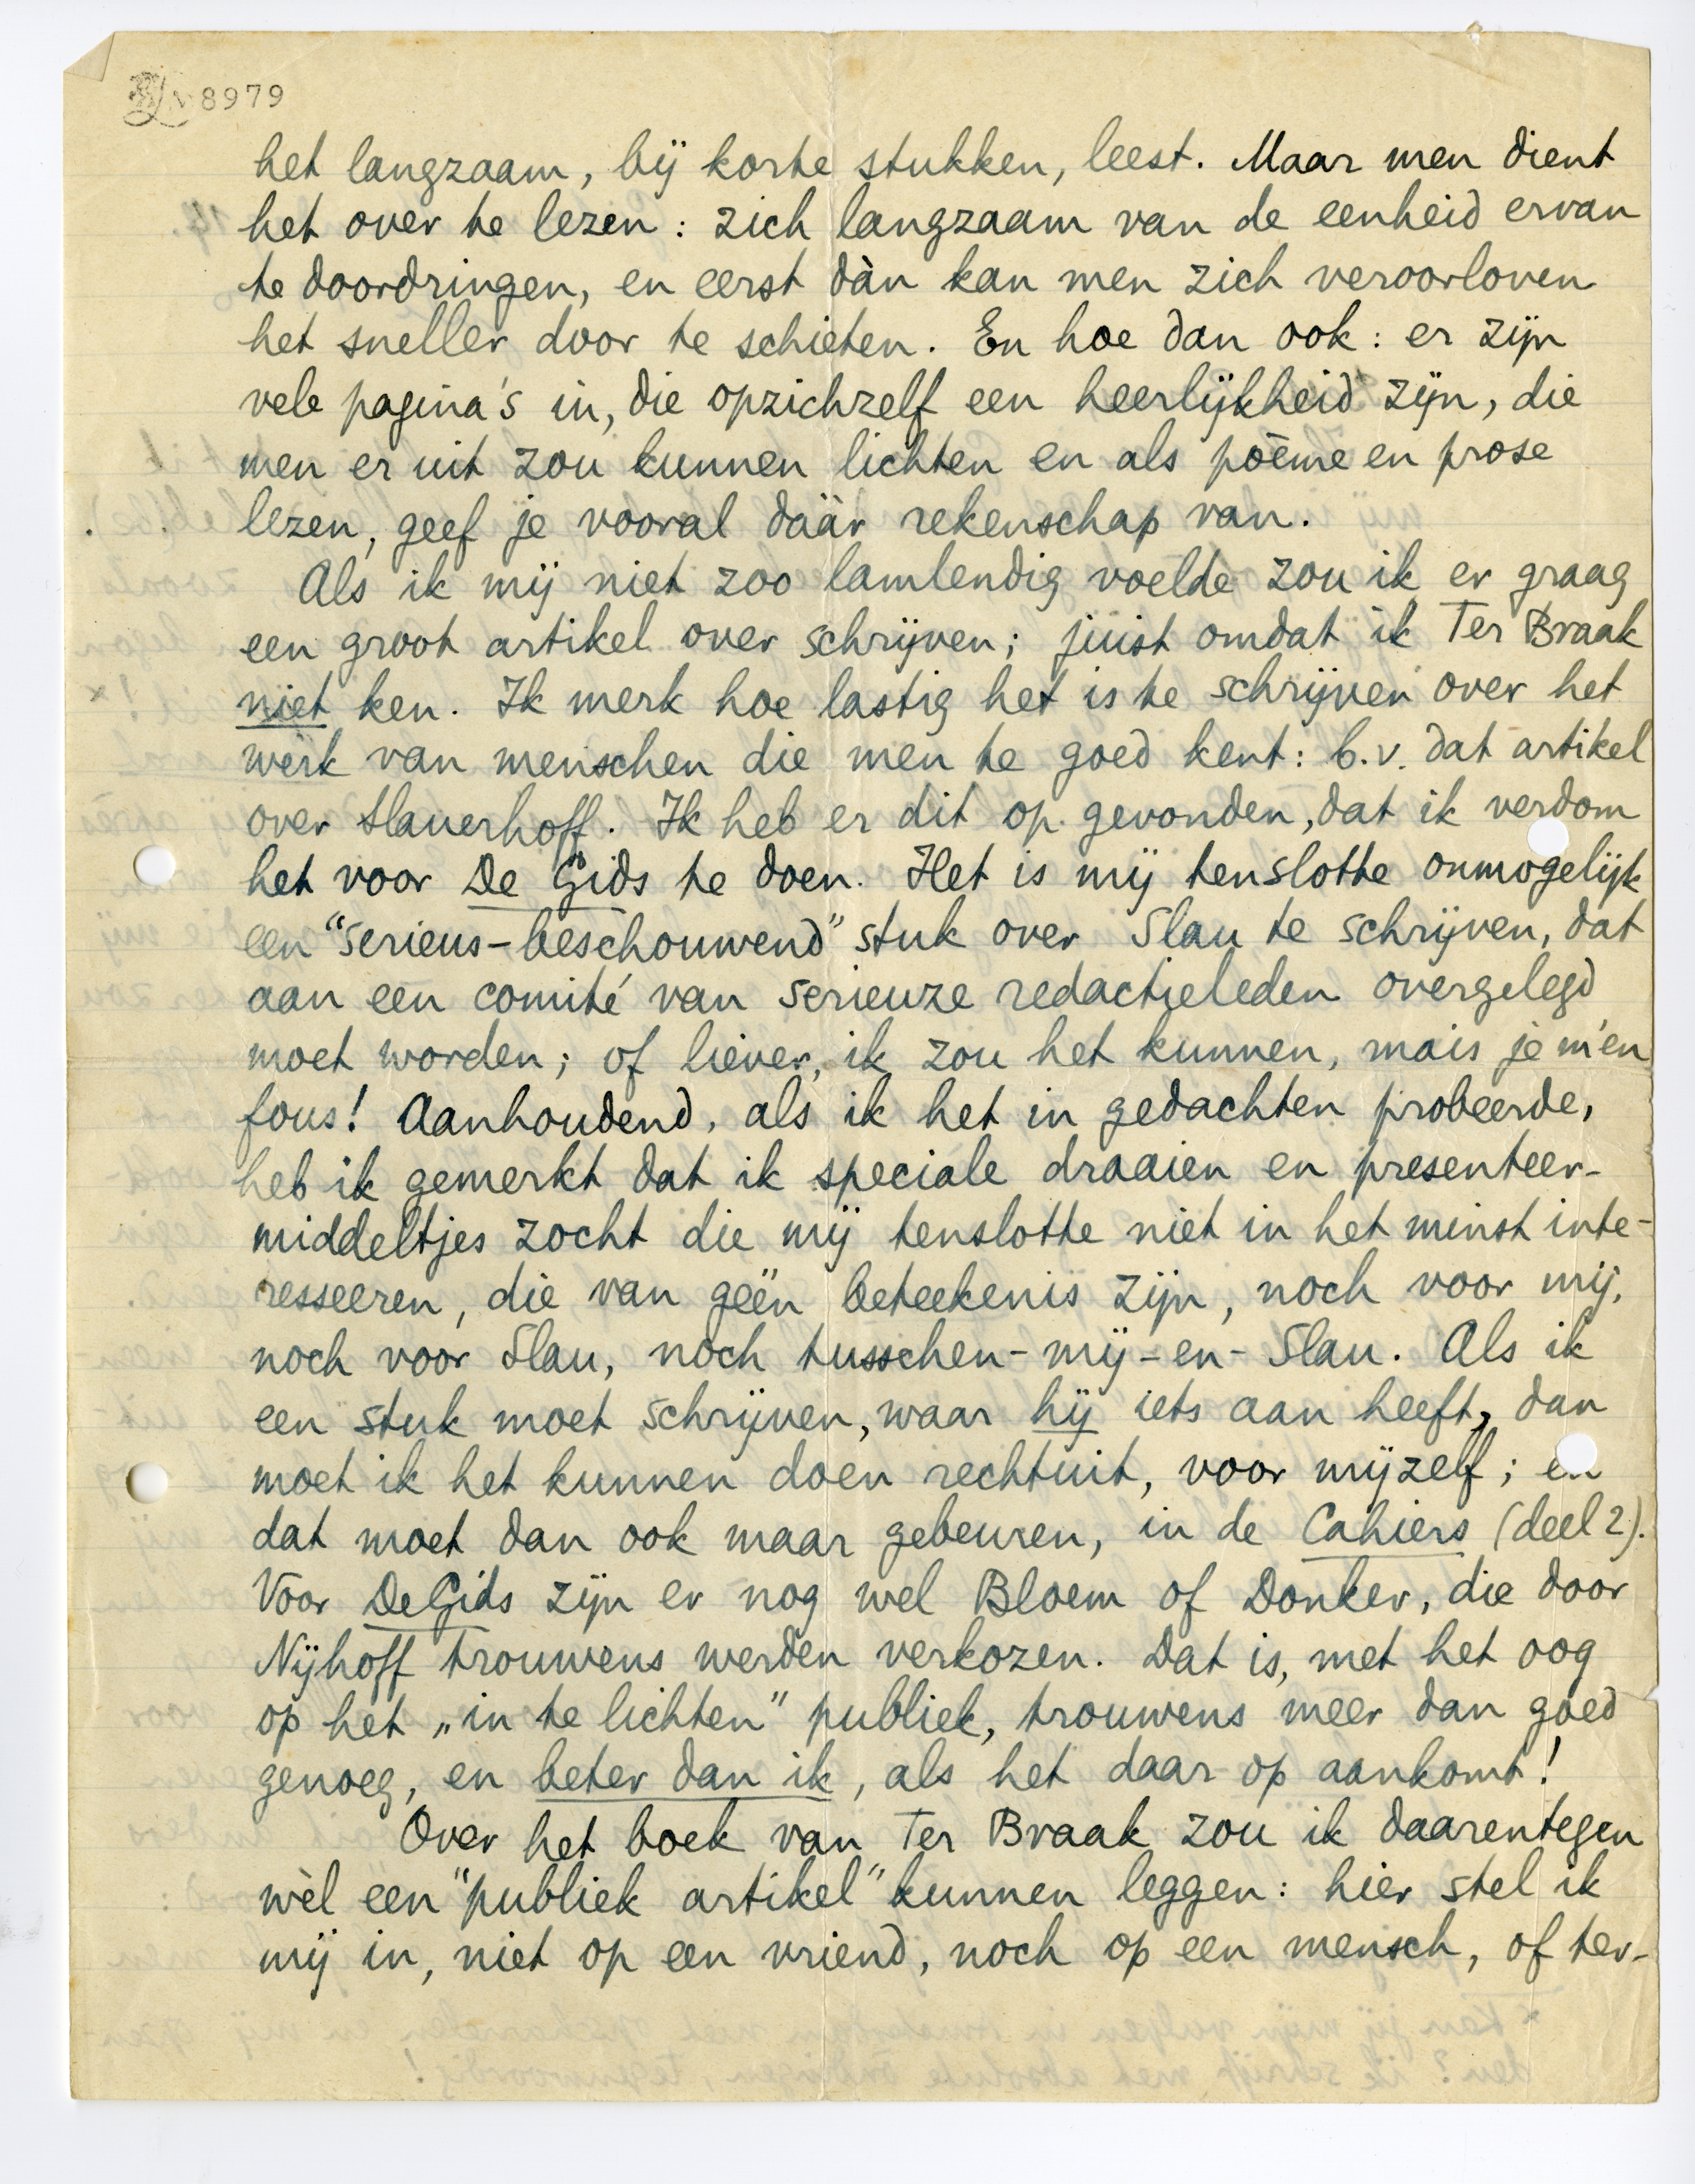 8979
het langzaam, bij korte stukken, leest. Maar men dient
het over te lezen: zich langzaam van de eenheid ervan
te doordringen, en eerst dàn kan men zich veroorloven
het sneller door te schieten. En hoe dan ook: er zijn
vele pagina's in, die opzichzelf een heerlijkheid zijn, die
men er uit zou kunnen lichten en als poème en prose
lezen, geef je vooral dáár rekenschap van.
Als ik mij niet zoo lamlendig voelde zou ik er graag
een groot artikel over schrijven; juist omdat ik Ter Braak
niet ken. Ik merk hoe lastig het is te schrijven over het
werk van menschen die men te goed kent: b.v. dat artikel
over Slauerhoff. Ik heb er dit op gevonden, dat ik verdom
het voor De Gids te doen. Het is mij tenslotte onmogelijk
een "serieus-beschouwend" stuk over Slau te schrijven, dat
aan een comité van serieuze redactieleden overgelegd
moet worden; of liever, ik zou het kunnen, mais je m'en
fous! Aanhoudend, als ik het in gedachten probeerde,
heb ik gemerkt dat ik speciale draaien en presenteer-
middeltjes zocht die mij tenslotte niet in het minst inte-
resseeren, die van géén beteekenis zijn, noch voor mij,
noch voor Slau, noch tusschen-mij-en-Slau. Als ik
een stuk moet schrijven, waar hij iets aan heeft, dan
moet ik het kunnen doen rechtuit, voor mijzelf; en
dat moet dan ook maar gebeuren, in de Cahiers (deel 2).
Voor De Gids zijn er nog wel Bloem of Donker, die door
Nijhoff trouwens werden verkozen. Dat is, met het oog
op het „in te lichten" publiek, trouwens meer dan goed
genoeg, en beter dan ik, als het daar op aankomt!
Over het boek van Ter Braak zou ik daarentegen
wèl een "publiek artikel" kunnen leggen: hier stel ik
mij in, niet op een vriend, noch op een mensch, of ter-